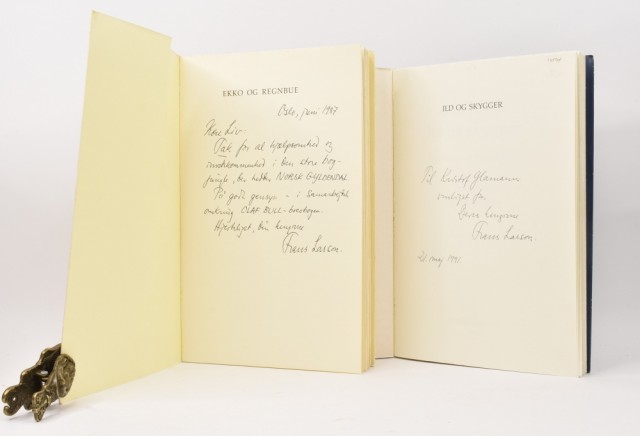 EKKO OG REGNBUE
Oslo, juni 1987
Kære Liv
Tak for al hjælpsomhed og
imødekommenhed i den store bog-
jungle, der hedder NORSK GYLDENDAL
På godt gensyn - i samarbejdet
omkring OLAF BULL-brevbogen.
Hjerteligst, din hengivne
Frans Lasson.
ILD OG SKYGGER
Til Kristof Glamann
venligst fra
Deres hengivne
Frans Lasson.
maj 1991.